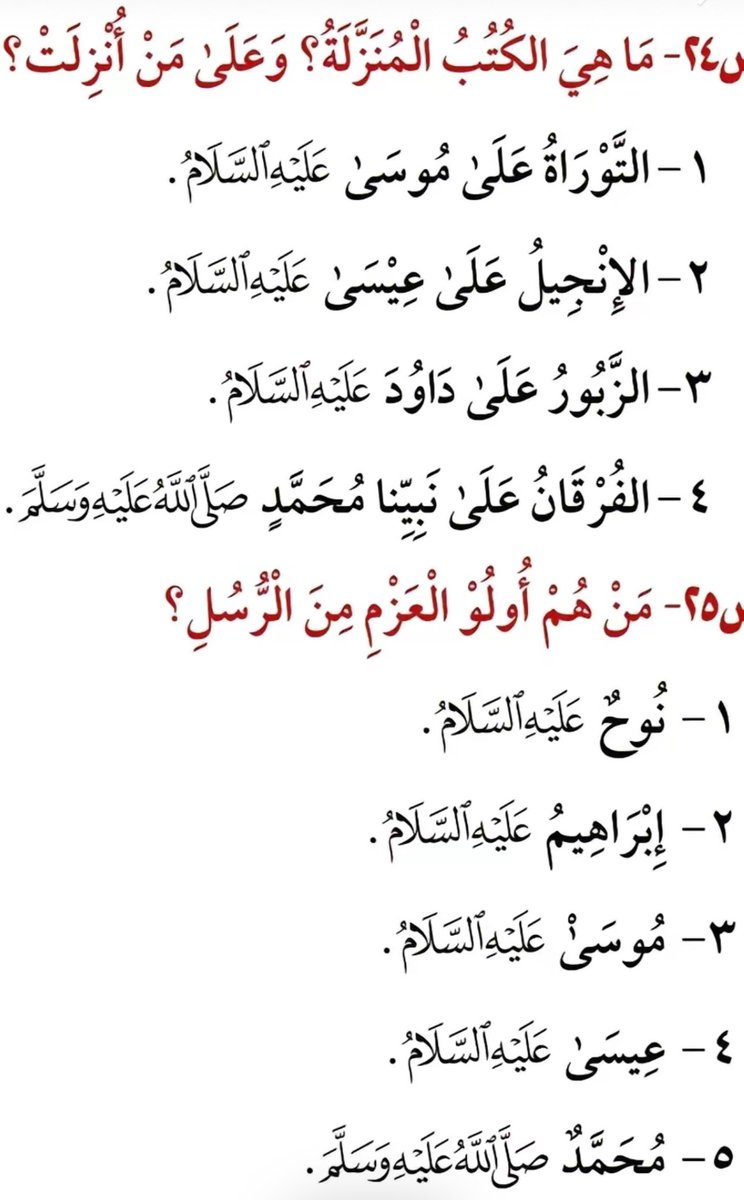 س٢٤- مَا هِيَ الكُتُبُ الْمُنَزَّلَةُ؟ وَعَلَىٰ مَنْ أُنْزِلَتْ؟
١- التَّوْرَاةُ عَلَىٰ مُوسَىٰ عَلَيْهِ ٱلسَّلَامُ.
٢- الإِنْجِيلُ عَلَىٰ عِيْسَىٰ عَلَيْهِ ٱلسَّلَامُ.
٣- الزَّبُورُ عَلَىٰ دَاوُدَ عَلَيْهِ ٱلسَّلَامُ.
٤- الفُرْقَانُ عَلَىٰ نَبِيِّنِا مُحَمَّدٍ صَلَّى ٱللَّهُ عَلَيْهِ وَسَلَّمَ.
س٢٥- مَنْ هُمْ أُولُوْ الْعَزْمِ مِنَ الْرُّسُلِ؟
١- نُوحٌ عَلَيْهِ ٱلسَّلَامُ.
٢- إِبْرَاهِيمُ عَلَيْهِ ٱلسَّلَامُ.
٣- مُوسَىْ عَلَيْهِ ٱلسَّلَامُ.
٤- عِيسَىٰ عَلَيْهِ ٱلسَّلَامُ.
٥- مُحَمَّدٌ صَلَّى ٱللَّهُ عَلَيْهِ وَسَلَّمَ.